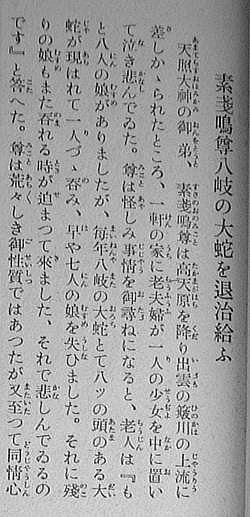 素戔鳴尊八岐の大蛇を退治給ふ
天照大神の御弟、素戔鳴尊は高天原を降り出雲の簸川の上流に
差しかゝられたところ、一軒の家に老夫婦が一人の少女を中に置い
て泣き悲しんでゐた。尊は怪しみ事情を御尋ねになると、老人は『も
と八人の娘がありましたが、毎年八岐の大蛇とて八ッの頭のある大
蛇が現はれて一人づゝ呑み、早や七人の娘を失ひました。それに殘
りの娘もまた呑れる時が迫まつて來ました、それで悲しんでゐるの
です』と答へた。尊は荒々しき御性質ではあつたが又至つて同情心